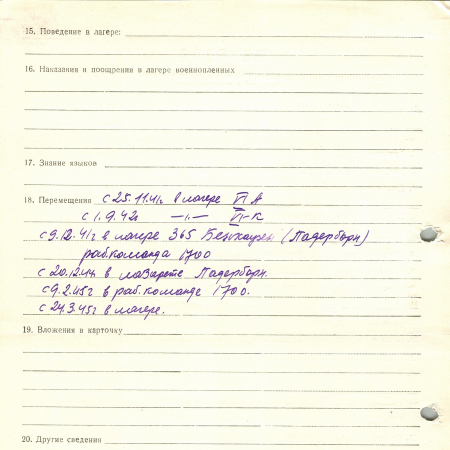 15. Поведение в лагере:
16. Наказания и поощрения в лагере военнопленных
17. Знание языков
18. Перемещения с 25.11.41г. в лагере VI А
с 1.9.42г —〃— VI-К
с 9.12.41г в лагере 365 Бенхаузен (Падерборн)
раб.команда 1700
с 20.12.44 в лазарете Падерборн.
с 9.2.45г в раб.команде 1700.
с 24.3.45г в лагере.
19. Вложения в карточку
20. Другие сведения